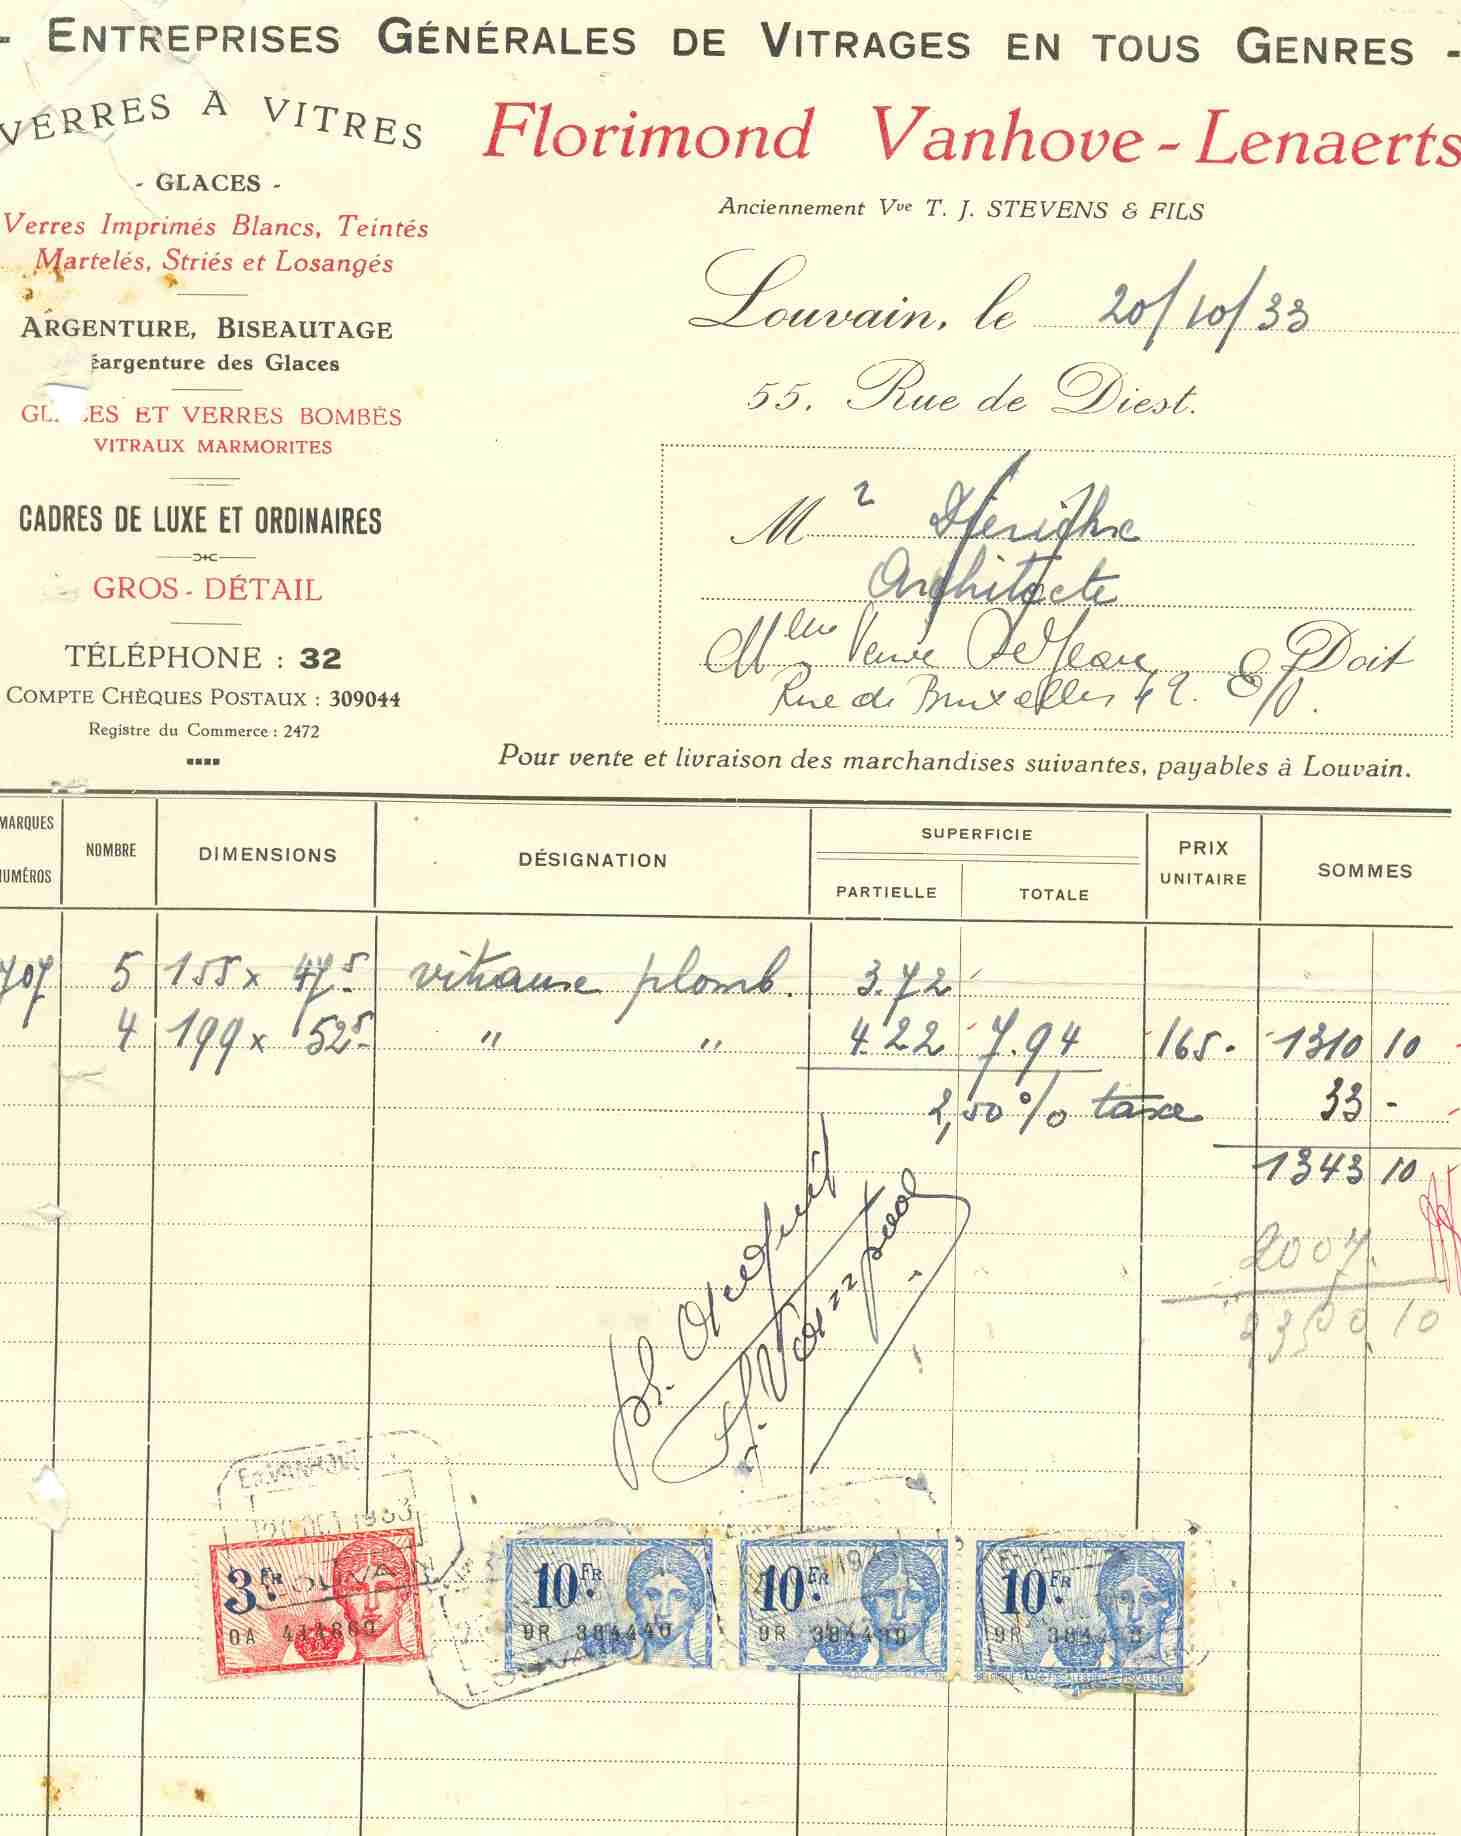 - ENTREPRISES GÉNÉRALES DE VITRAGES EN TOUS GENRES -
VERRES A VITRES
- GLACES -
Verres Imprimés Blancs, Teintés
Martelés, Striés et Losangés
ARGENTURE, BISEAUTAGE
éargenture des Glaces
GL CES ET VERRES BOMBÉS
VITRAUX MARMORITES
CADRES DE LUXE ET ORDINAIRES
GROS - DÉTAIL
TÉLÉPHONE : 32
COMPTE CHÈQUES POSTAUX : 309044
Registre du Commerce : 2472
Florimond Vanhove - Lenaerts
Anciennement Vve T. J. STEVENS & FILS
Louvain, le 20/10/33
55, Rue de Diest.
Mr
Architecte
Veuve Doit
Rue de Bruxelles 42. E/V.
Pour vente et livraison des marchandises suivantes, payables à Louvain.
MARQUES NUMÉROS NOMBRE DIMENSIONS DÉSIGNATION SUPERFICIE PARTIELLE TOTALE PRIX UNITAIRE SOMMES
707 5 155 x 47 5 vitraux plomb. 3.72
4 199 x 52 5 " " 4.22 7.94 165.- 1310 10
2,50 % taxe 33 -
1343 10
2007.
10
pr. Acquit
VANHOVE
20 OCT 1933
LOUVAIN
3 FR.
0A
10 FR.
9R 384440
10 FR.
9R
10 FR.
9R
LOUVAIN